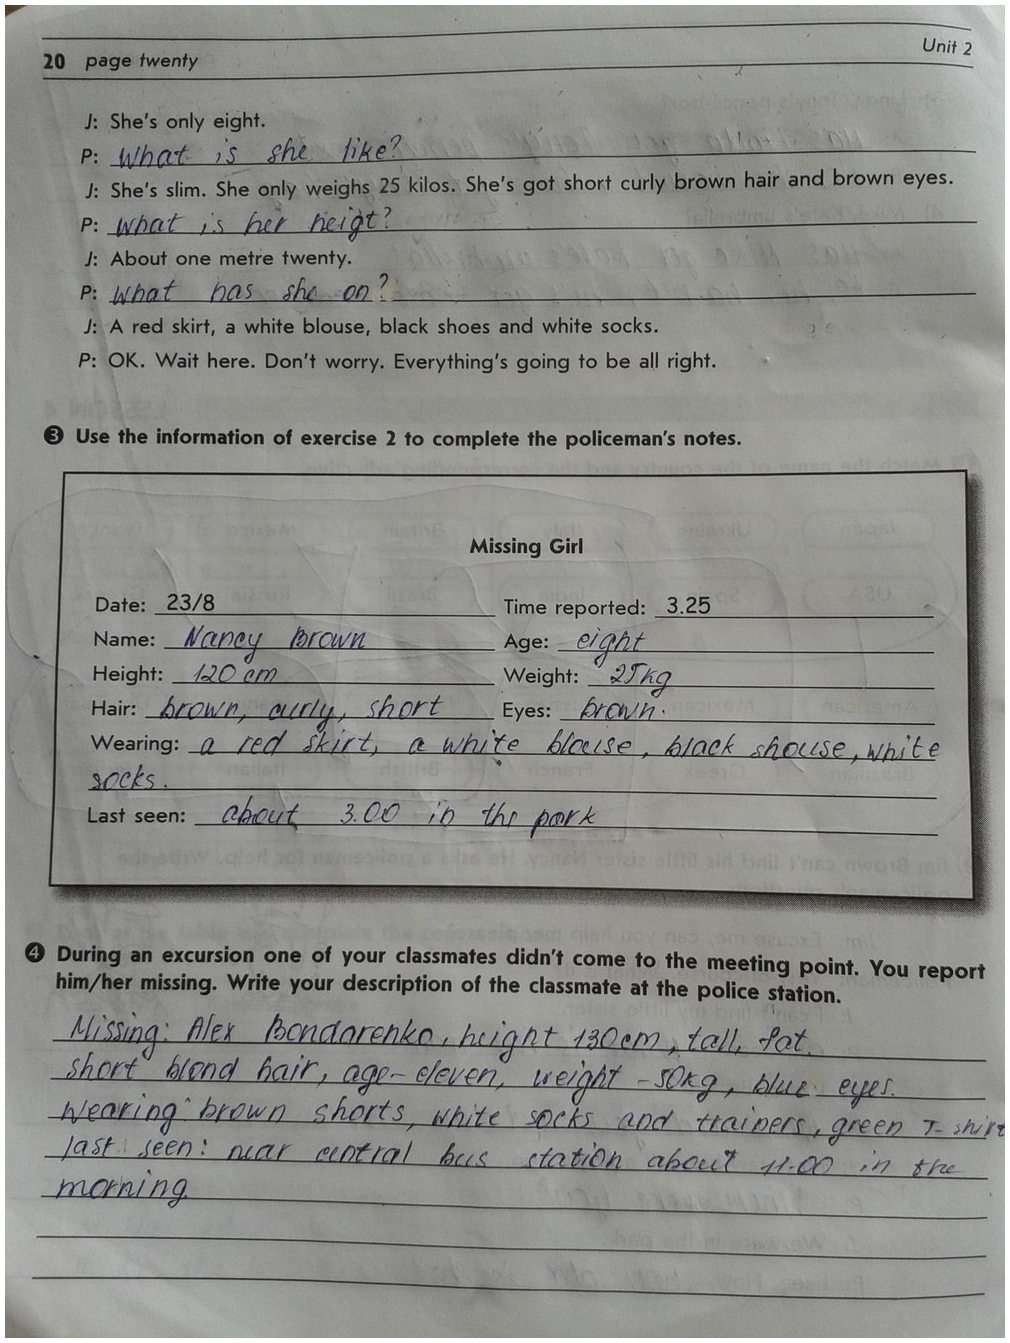 20 page twenty Unit 2
J: She's only eight.
P: What is she like?
J: She's slim. She only weighs 25 kilos. She's got short curly brown hair and brown eyes.
P: What is her heigt?
J: About one metre twenty.
P: What has she on?
J: A red skirt, a white blouse, black shoes and white socks.
P: OK. Wait here. Don't worry. Everything's going to be all right.
3 Use the information of exercise 2 to complete the policeman's notes.
Missing Girl
Date: 23/8 Time reported: 3.25
Name: Nancy Brown Age: eight
Height: 120 cm Weight: 25kg
Hair: brown, curly, short Eyes: brown.
Wearing: a red skirt, a white blouse, black shouse, white
socks.
Last seen: about 3.00 in the park
4 During an excursion one of your classmates didn't come to the meeting point. You report
him/her missing. Write your description of the classmate at the police station.
Missing: Alex Bondarenko, height 130cm, tall, fat.
short blond hair, age-eleven, weight -50kg, blue eyes.
Wearing: brown shorts, white socks and trainers, green T-shirt
last seen: near central bus station about 11.00 in the
morning